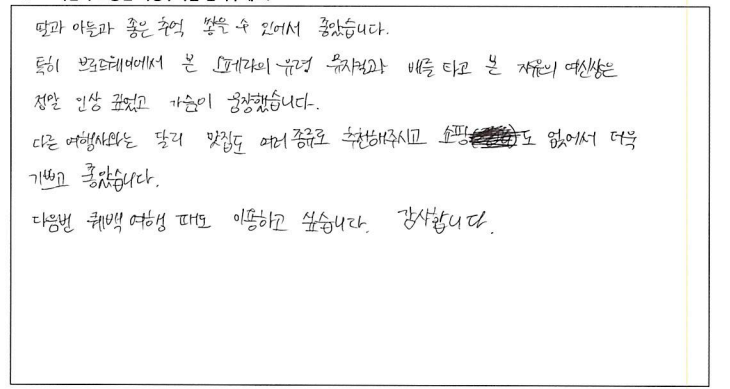 딸과 아들과 좋은 추억 쌓을 수 있어서 좋았습니다.
특히 브로드웨이에서 본 오페라의 유령 뮤지컬과 배를 타고 본 자유의 여신상은
정말 인상 깊었고 가슴이 웅장했습니다.
다른 여행사와는 달리 맛집도 여러 종류로 추천해주시고 쇼핑도 없어서 더욱
기쁘고 좋았습니다.
다음번 퀘백 여행 때도 이용하고 싶습니다. 감사합니다.